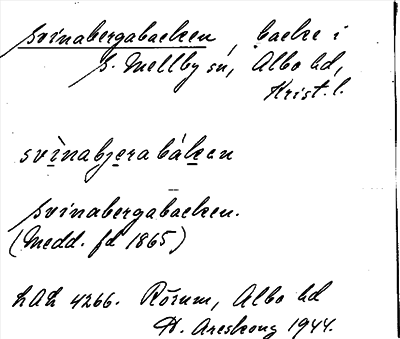 Svinabergabacken, backe i
S. Mellby sn, Albo hd,
Krist. l.
svìnabjera báken
Svinabergabacken.
(Medd. fd 1865)
LAL 4266. Rörum, Albo hd
H. Areskoug 1944.